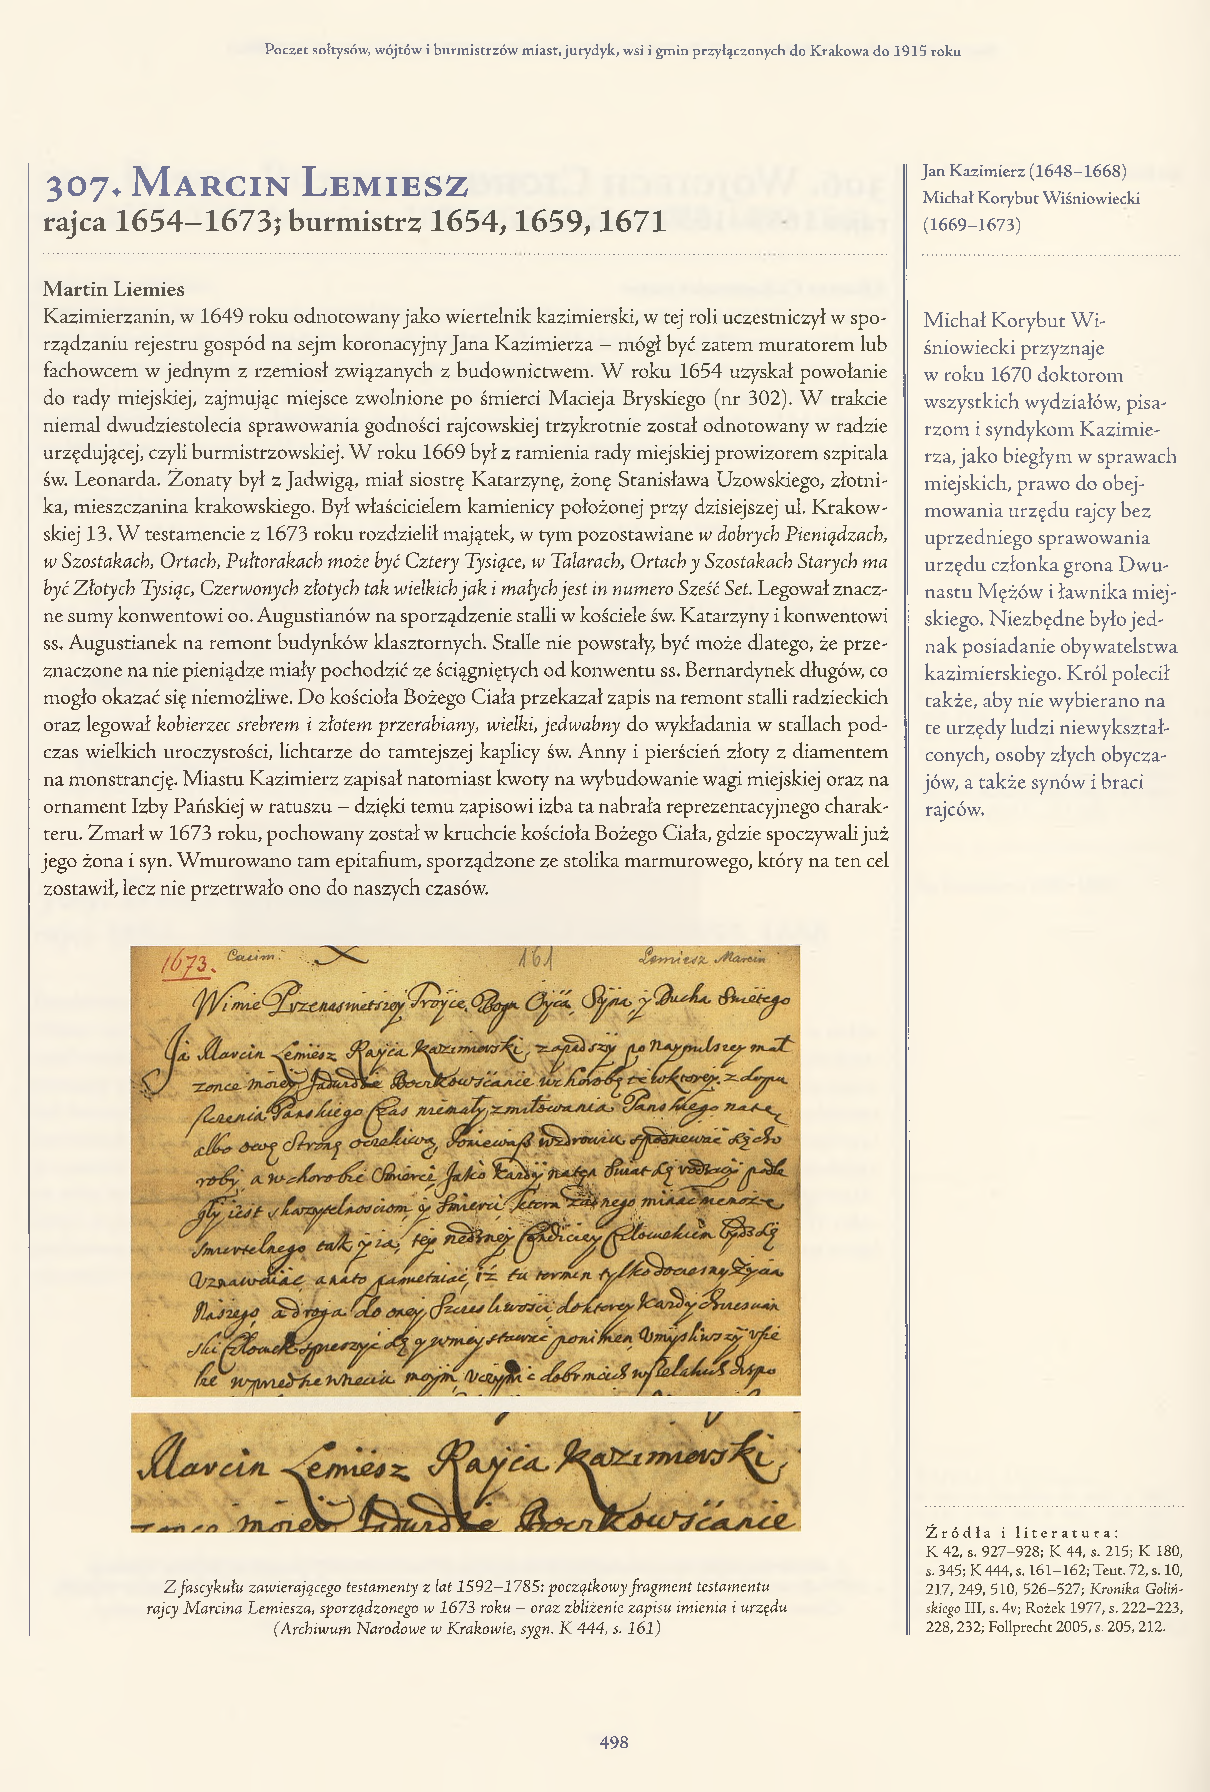 Poczet sołtysów, wójtów i burmistrzów miast, jurydyk, wsi i gmin przyłączonych do Krakowa do 1915 roku
307. Marcin Lemiesz
rajca 1654–1673; burmistrz 1654, 1659, 1671
Martin Liemies
Kazimierzanin, w 1649 roku odnotowany jako wiertelnik kazimierski, w tej roli uczestniczył w spo-
rządzaniu rejestru gospód na sejm koronacyjny Jana Kazimierza – mógł być zatem muratorem lub
fachowcem w jednym z rzemiosł związanych z budownictwem. W roku 1654 uzyskał powołanie
do rady miejskiej, zajmując miejsce zwolnione po śmierci Macieja Bryskiego (nr 302). W trakcie
niemal dwudziestolecia sprawowania godności rajcowskiej trzykrotnie został odnotowany w radzie
urzędującej, czyli burmistrzowskiej. W roku 1669 był z ramienia rady miejskiej prowizorem szpitala
św. Leonarda. Żonaty był z Jadwigą, miał siostrę Katarzynę, żonę Stanisława Uzowskiego, złotni-
ka, mieszczanina krakowskiego. Był właścicielem kamienicy położonej przy dzisiejszej ul. Krakow-
skiej 13. W testamencie z 1673 roku rozdzielił majątek, w tym pozostawiane w dobrych Pieniądzach,
w Szostakach, Ortach, Pułtorakach może być Cztery Tysiące, w Talarach, Ortach y Szostakach Starych ma
być Złotych Tysiąc, Czerwonych złotych tak wielkich jak i małych jest in numero Sześć Set. Legował znacz-
ne sumy konwentowi oo. Augustianów na sporządzenie stalli w kościele św. Katarzyny i konwentowi
ss. Augustianek na remont budynków klasztornych. Stalle nie powstały, być może dlatego, że prze-
znaczone na nie pieniądze miały pochodzić ze ściągniętych od konwentu ss. Bernardynek długów, co
mogło okazać się niemożliwe. Do kościoła Bożego Ciała przekazał zapis na remont stalli radzieckich
oraz legował kobierzec srebrem i złotem przerabiany, wielki, jedwabny do wykładania w stallach pod-
czas wielkich uroczystości, lichtarze do tamtejszej kaplicy św. Anny i pierścień złoty z diamentem
na monstrancję. Miastu Kazimierz zapisał natomiast kwoty na wybudowanie wagi miejskiej oraz na
ornament Izby Pańskiej w ratuszu – dzięki temu zapisowi izba ta nabrała reprezentacyjnego charak-
teru. Zmarł w 1673 roku, pochowany został w kruchcie kościoła Bożego Ciała, gdzie spoczywali już
jego żona i syn. Wmurowano tam epitafium, sporządzone ze stolika marmurowego, który na ten cel
zostawił, lecz nie przetrwało ono do naszych czasów.
1673. Casim: 161 Lemiesz Marcin
W imie Przenaswietszey Troyce, Boga Oyca, Syna, y Ducha Swietego
Ja Marcin Lemiesz Rayca Kazimierski, zapadszy po
Marcin Lemiesz Rayca Kazimierski,
Z fascykułu zawierającego testamenty z lat 1592–1785: początkowy fragment testamentu
rajcy Marcina Lemiesza, sporządzonego w 1673 roku – oraz zbliżenie zapisu imienia i urzędu
(Archiwum Narodowe w Krakowie, sygn. K 444, s. 161)
Jan Kazimierz (1648–1668)
Michał Korybut Wiśniowiecki
(1669–1673)
Michał Korybut Wi-
śniowiecki przyznaje
w roku 1670 doktorom
wszystkich wydziałów, pisa-
rzom i syndykom Kazimie-
rza, jako biegłym w sprawach
miejskich, prawo do obej-
mowania urzędu rajcy bez
uprzedniego sprawowania
urzędu członka grona Dwu-
nastu Mężów i ławnika miej-
skiego. Niezbędne było jed-
nak posiadanie obywatelstwa
kazimierskiego. Król polecił
także, aby nie wybierano na
te urzędy ludzi niewykształ-
conych, osoby złych obycza-
jów, a także synów i braci
rajców.
Źródła i literatura:
K 42, s. 927–928; K 44, s. 215; K 180,
s. 345; K 444, s. 161–162; Teut. 72, s. 10,
217, 249, 510, 526–527; Kronika Goliń-
skiego III, s. 4v; Rożek 1977, s. 222–223,
228, 232; Follprecht 2005, s. 205, 212.
498